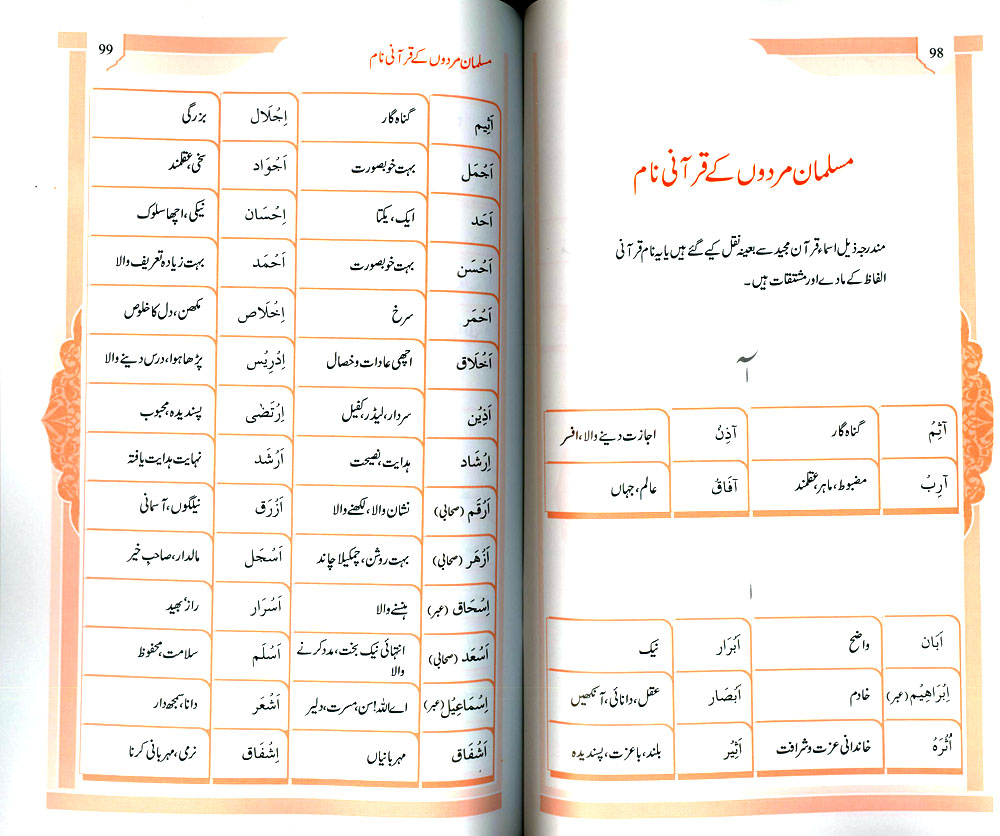 98
مسلمان مردوں کے قرآنی نام
مندرجہ ذیل اسماء قرآن مجید سے بعینہ نقل کیے گئے ہیں یا یہ نام قرآنی
الفاظ کے مادے اور مشتقات ہیں۔
آ
آثِمُ گناہ گار آذِنُ اجازت دینے والا، افسر
آرِبُ مضبوط، ماہر، عقلمند آفَاقُ عالم، جہاں
ا
اَبَان واضح اَبْرَار نیک
اِبْرَاهِيْم (عبر) خادم اَبْصَار عقل، دانائی، آنکھیں
اُثْرَهُ خاندانی عزت و شرافت اَثِيْر بلند، باعزت، پسندیدہ
99
مسلمان مردوں کے قرآنی نام
اَثِيم گناہ گار اِجْلَال بزرگی
اَجْمَل بہت خوبصورت اَجْوَاد سخی، عقلمند
اَحَد ایک، یکتا اِحْسَان نیکی، اچھا سلوک
اَحْسَن بہت خوبصورت اَحْمَد بہت زیادہ تعریف والا
اَحْمَر سرخ اِخْلَاص مکھن، دل کا خلوص
اَخْلَاق اچھی عادات و خصال اِدْرِيْس پڑھا ہوا، درس دینے والا
اَذِيْن سردار، لیڈر، کفیل اِرْتَضٰى پسندیدہ، محبوب
اِرْشَاد ہدایت، نصیحت اَرْشَد نہایت ہدایت یافتہ
اَرْقَم (صحابی) نشان والا، لکھنے والا اَزْرَق نیلگوں، آسمانی
اَزْهَر (صحابی) بہت روشن، چمکیلا چاند اَسْجَل مالدار، صاحب خیر
اِسْحَاق (عبر) ہنسنے والا اَسْرَار راز، بھید
اَسْعَد (صحابی) انتہائی نیک بخت، مدد کرنے
والا اَسْلَم سلامت، محفوظ
اِسْمَاعِيْل (عبر) اے اللہ! سن، مسرت، دلیر اَشْعَر دانا، سمجھ دار
اَشْفَاق مہربانیاں اِشْفَاق نرمی، مہربانی کرنا